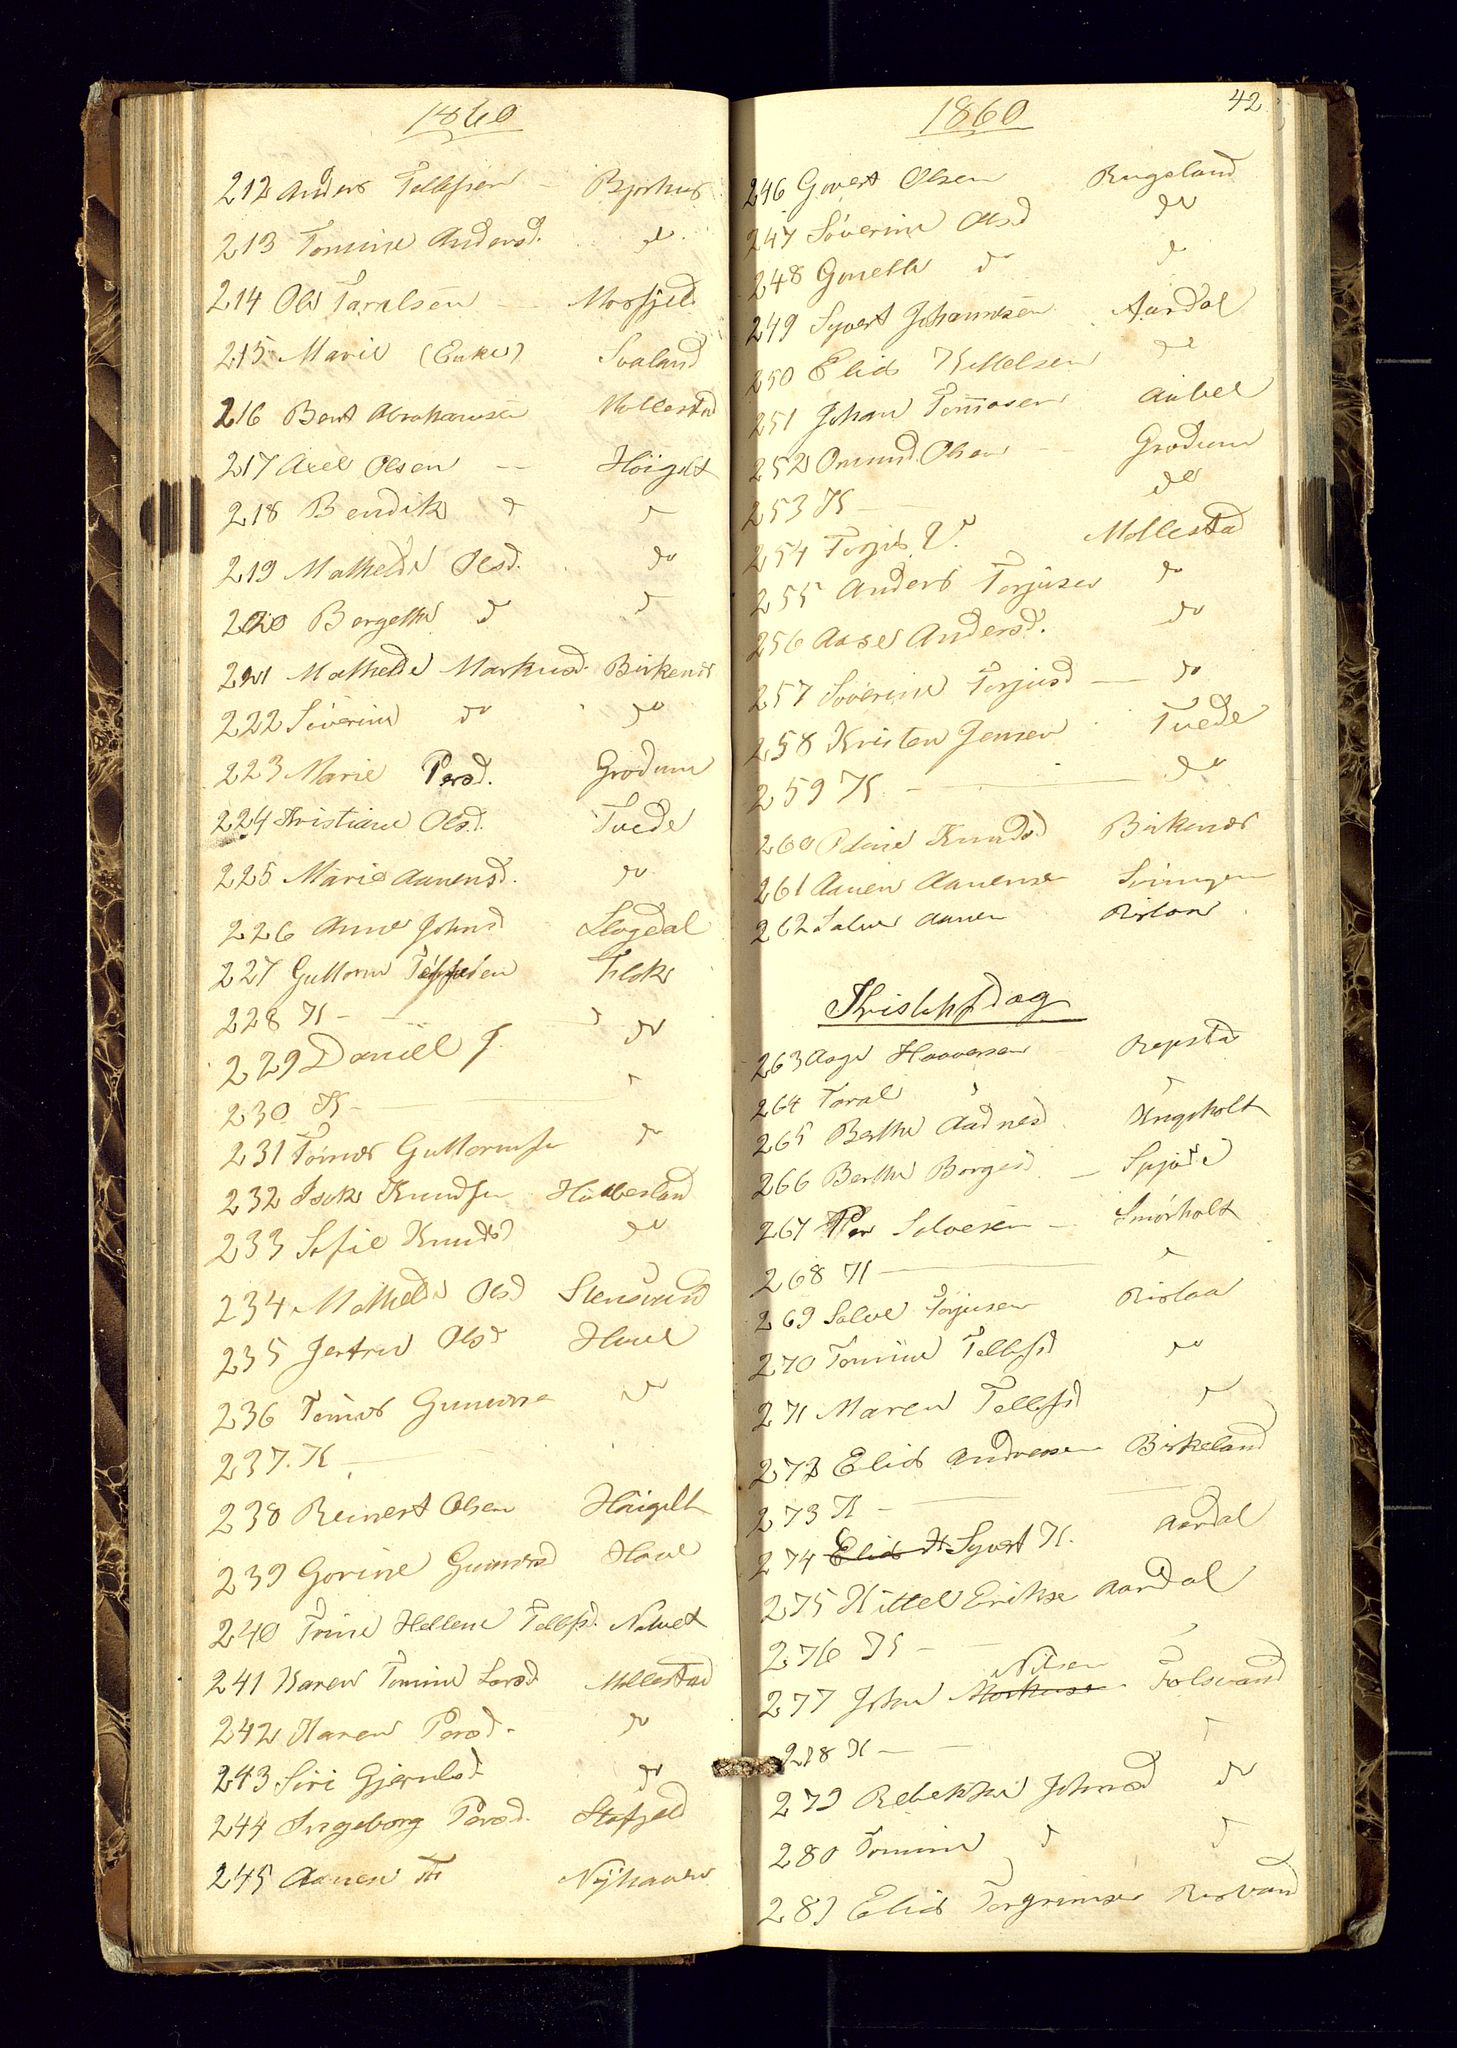 1860
212 Anders Tellefsen - Bjorhus
213 Tomine Andersd. do
214 Ole Taralsen - Mosfjeld
215 Marie (Enke) Svaland
216 Bent Abrahamsen Mollestad
217 Axel Olsen - Höigilt
218 Bendik d d
219 Mathilde Olsd. do
220 Bergethe d d
221 Mathilde Markusd. Birkenes
222 Söverine do do
223 Marie Persd. Grødum
224 Kristiane Olsd. Tvede
225 Marie Aanensd. do
226 Anne Johnsd Slogdal
227 Guttorm
228 K -
229 Daniel J. do
230 K -
231 Tomas Guttormsen do
232 Knudsen
233 Sofie Knudsd do
234 Mathilde Olsd Stensvand
235 Jertru Olsd Hove
236 Tomas Gunders do
237. K -
238 Reinert Olsen Höigilt
239 Gorine Gundersd Hove
240 Trine Hellene Tellefsd. Natvet
241 Karen Tomine Larsd Mollestad
242 Karen Persd. do
243 Siri Gjerulsd do
244 Ingeborg Persd. Stofjeld
245 Aanen Th Nÿhaven
1860
42
246 Govert Olsen Rugsland
247 Söverine Olsd do
248 Gunelle do do
249 Syvert Johannesen Aardal
250 Elias Kittelsen do
251 Johan Tomasen Aabel
252 Omund Olsen - Grødum
253 K - do
254 Torjus Mollestad
255 Anders Torjusen do
256 Aase Andersd. do
257 Söverine Torjusd - do
258 Kristen Jensen Tvede
259 K. - do
260 Knudsd Birkenes
261 Aanen Aanensen
262 Salve Aanen Rislaa
263 Aage Haaversen Repstad
264 Taral
265 Berthe Aadnesd Engeholt
266 Berthe Borgesd - Spjøte
267 Per Salvesen - Smörholt
268 K -
269 Salve Torjusen Rislaa
270 Tomine Tellefsd do
271 Maren Tellefsd d
272 Elias Andreasen Birkeland
273 K -
274 Elias K Syvert K. Aardal
275 Kittel Eriksen Aardal
276 K -
Nilsen
277 John Markusen Tolsvand
278 K -
279 Rebekka Johnsd do
280 Tomine d d
281 Elias Torgrimsen Risvand